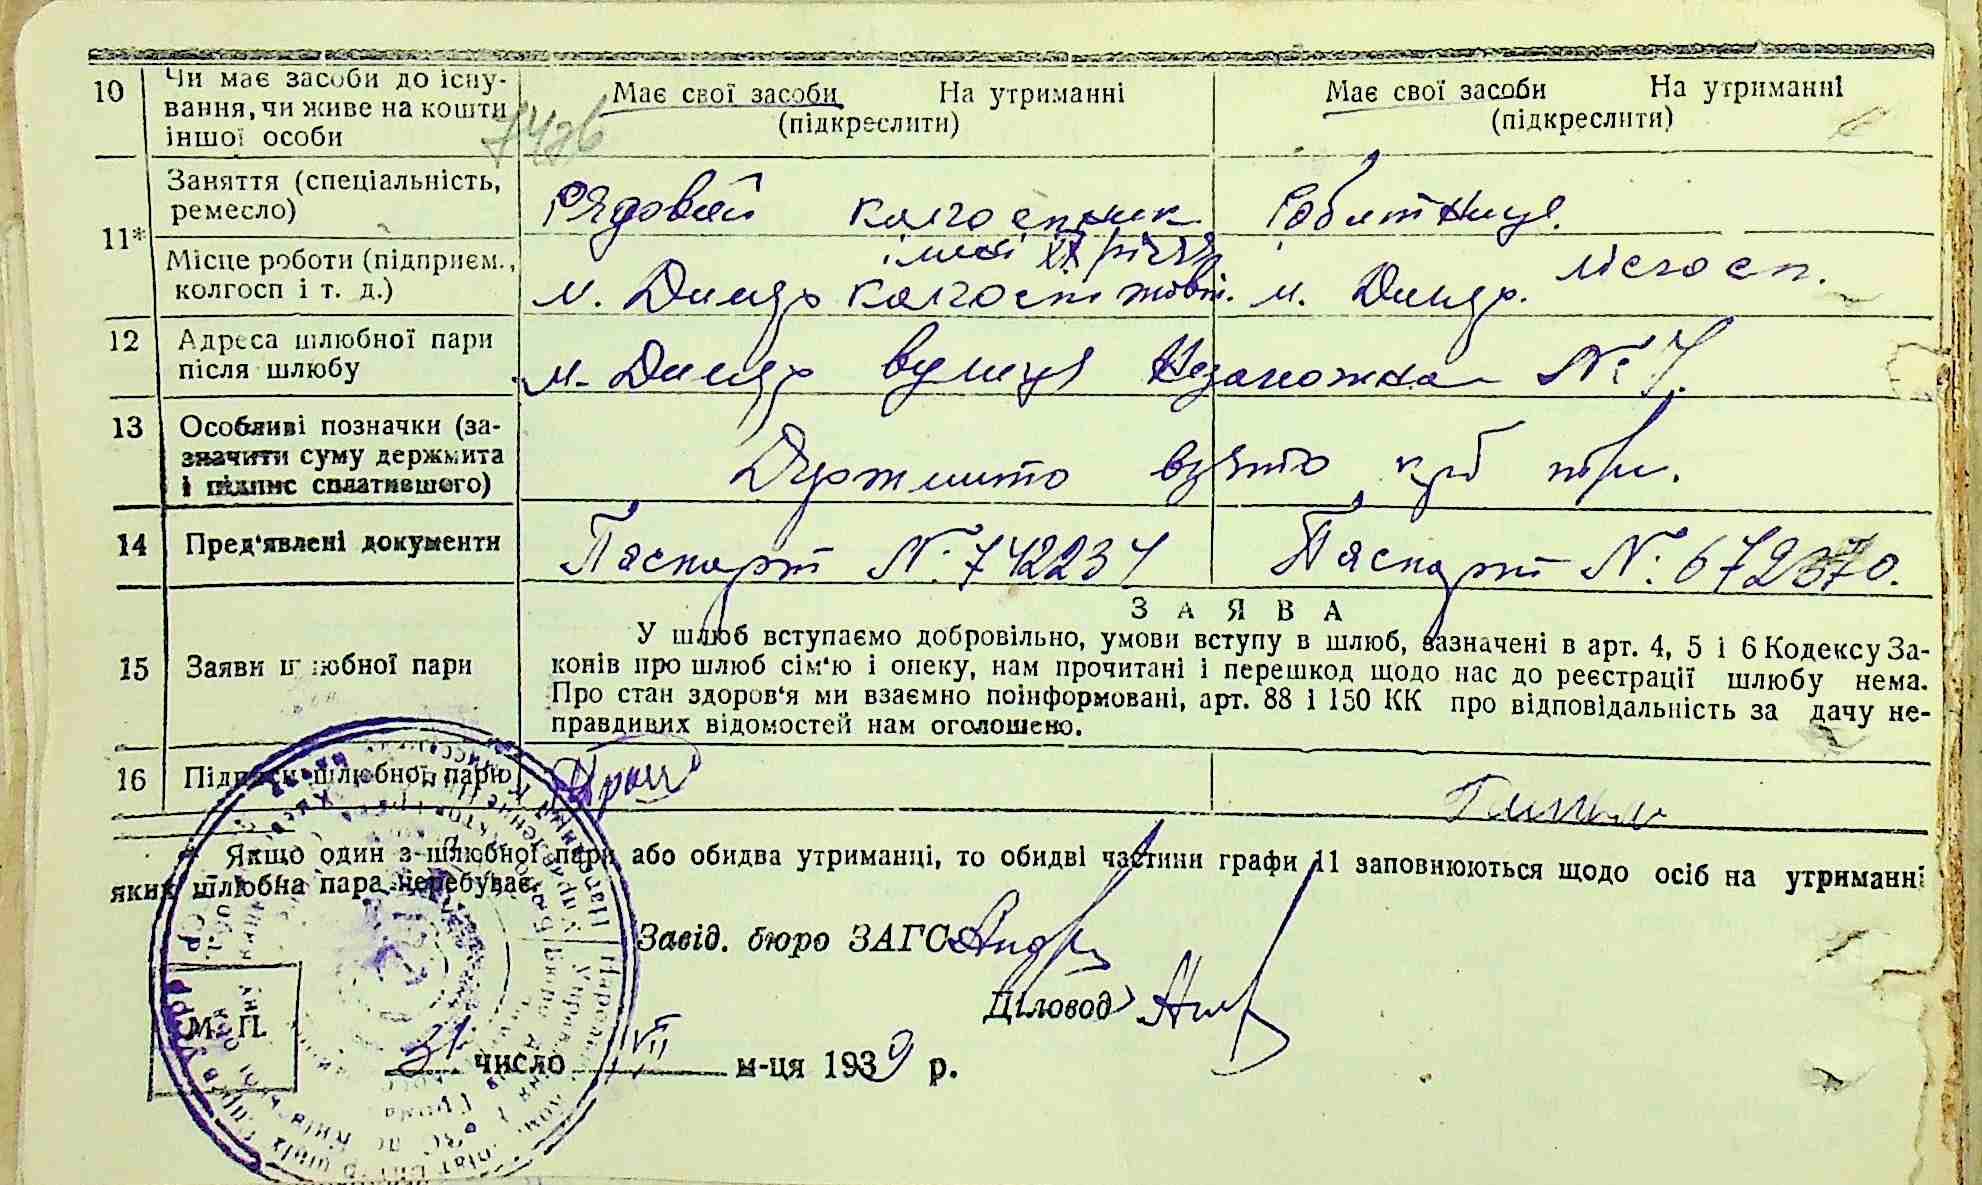 10 Чи має засоби до існу-
вання, чи живе на кошти
іншої особи
Має свої засоби На утриманні
(підкреслити)
Має свої засоби На утриманні
(підкреслити)
11* Заняття (спеціальність,
ремесло)
Рядовой колгоспник
Робітниця.
Місце роботи (підприєм.,
колгосп і т. д.)
імені ХХ річчя
м. Димер колгосп жовт.
м. Димер. лісгосп.
12 Адреса шлюбної пари
після шлюбу
м. Димер вулиця Незаможна № 7.
13 Особливі позначки (за-
значити суму держмита
і підпис сплатившого)
Держмито взято крб три.
14 Пред'явлені документи
Паспорт № 742234
Паспорт № 672370.
З А Я В А
15 Заяви шлюбної пари
У шлюб вступаємо добровільно, умови вступу в шлюб, зазначені в арт. 4, 5 і 6 Кодексу За-
конів про шлюб сім'ю і опеку, нам прочитані і перешкод щодо нас до реєстрації шлюбу нема.
Про стан здоров'я ми взаємно поінформовані, арт. 88 і 150 КК про відповідальність за дачу не-
правдивих відомостей нам оголошено.
16 Підписи шлюбної пари
* Якщо один з шлюбної пари або обидва утриманці, то обидві частини графи 11 заповнюються щодо осіб на утриманні
яких шлюбна пара перебуває.
Завід. бюро ЗАГС
Діловод
М. П.
31 число VII м-ця 1939 р.